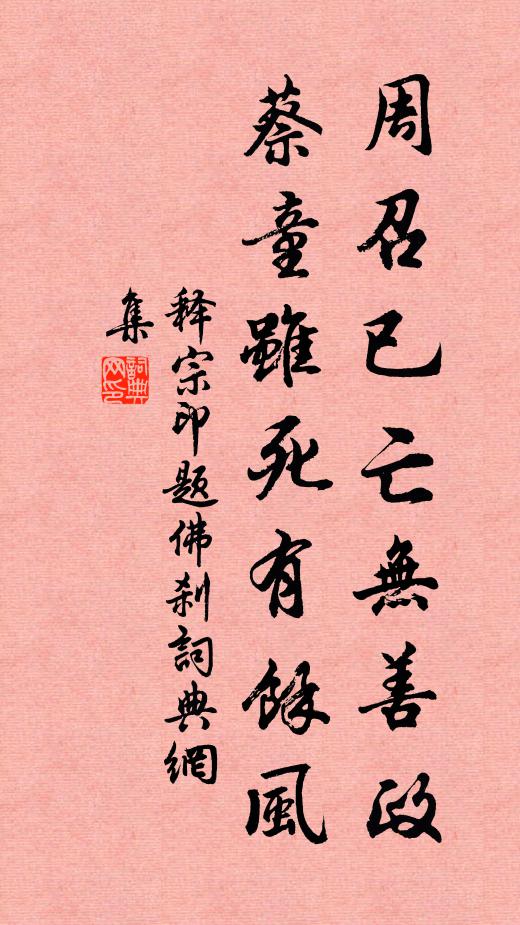 周召已亡無善政
蔡童雖死有餘風
释宗印題佛剎詞典網
集
詞典網印